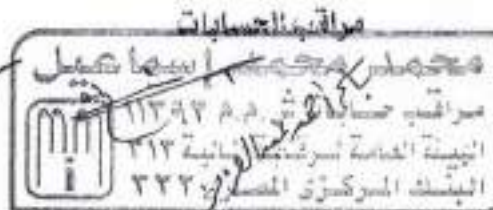 مراقب الحسابات
محمد محمد إسماعيل
مراقب ش.م.م ١١٣٩٣
الهيئة العامة للرقابة المالية ٣١٣
البنك المركزى المصرى ٣٣٣